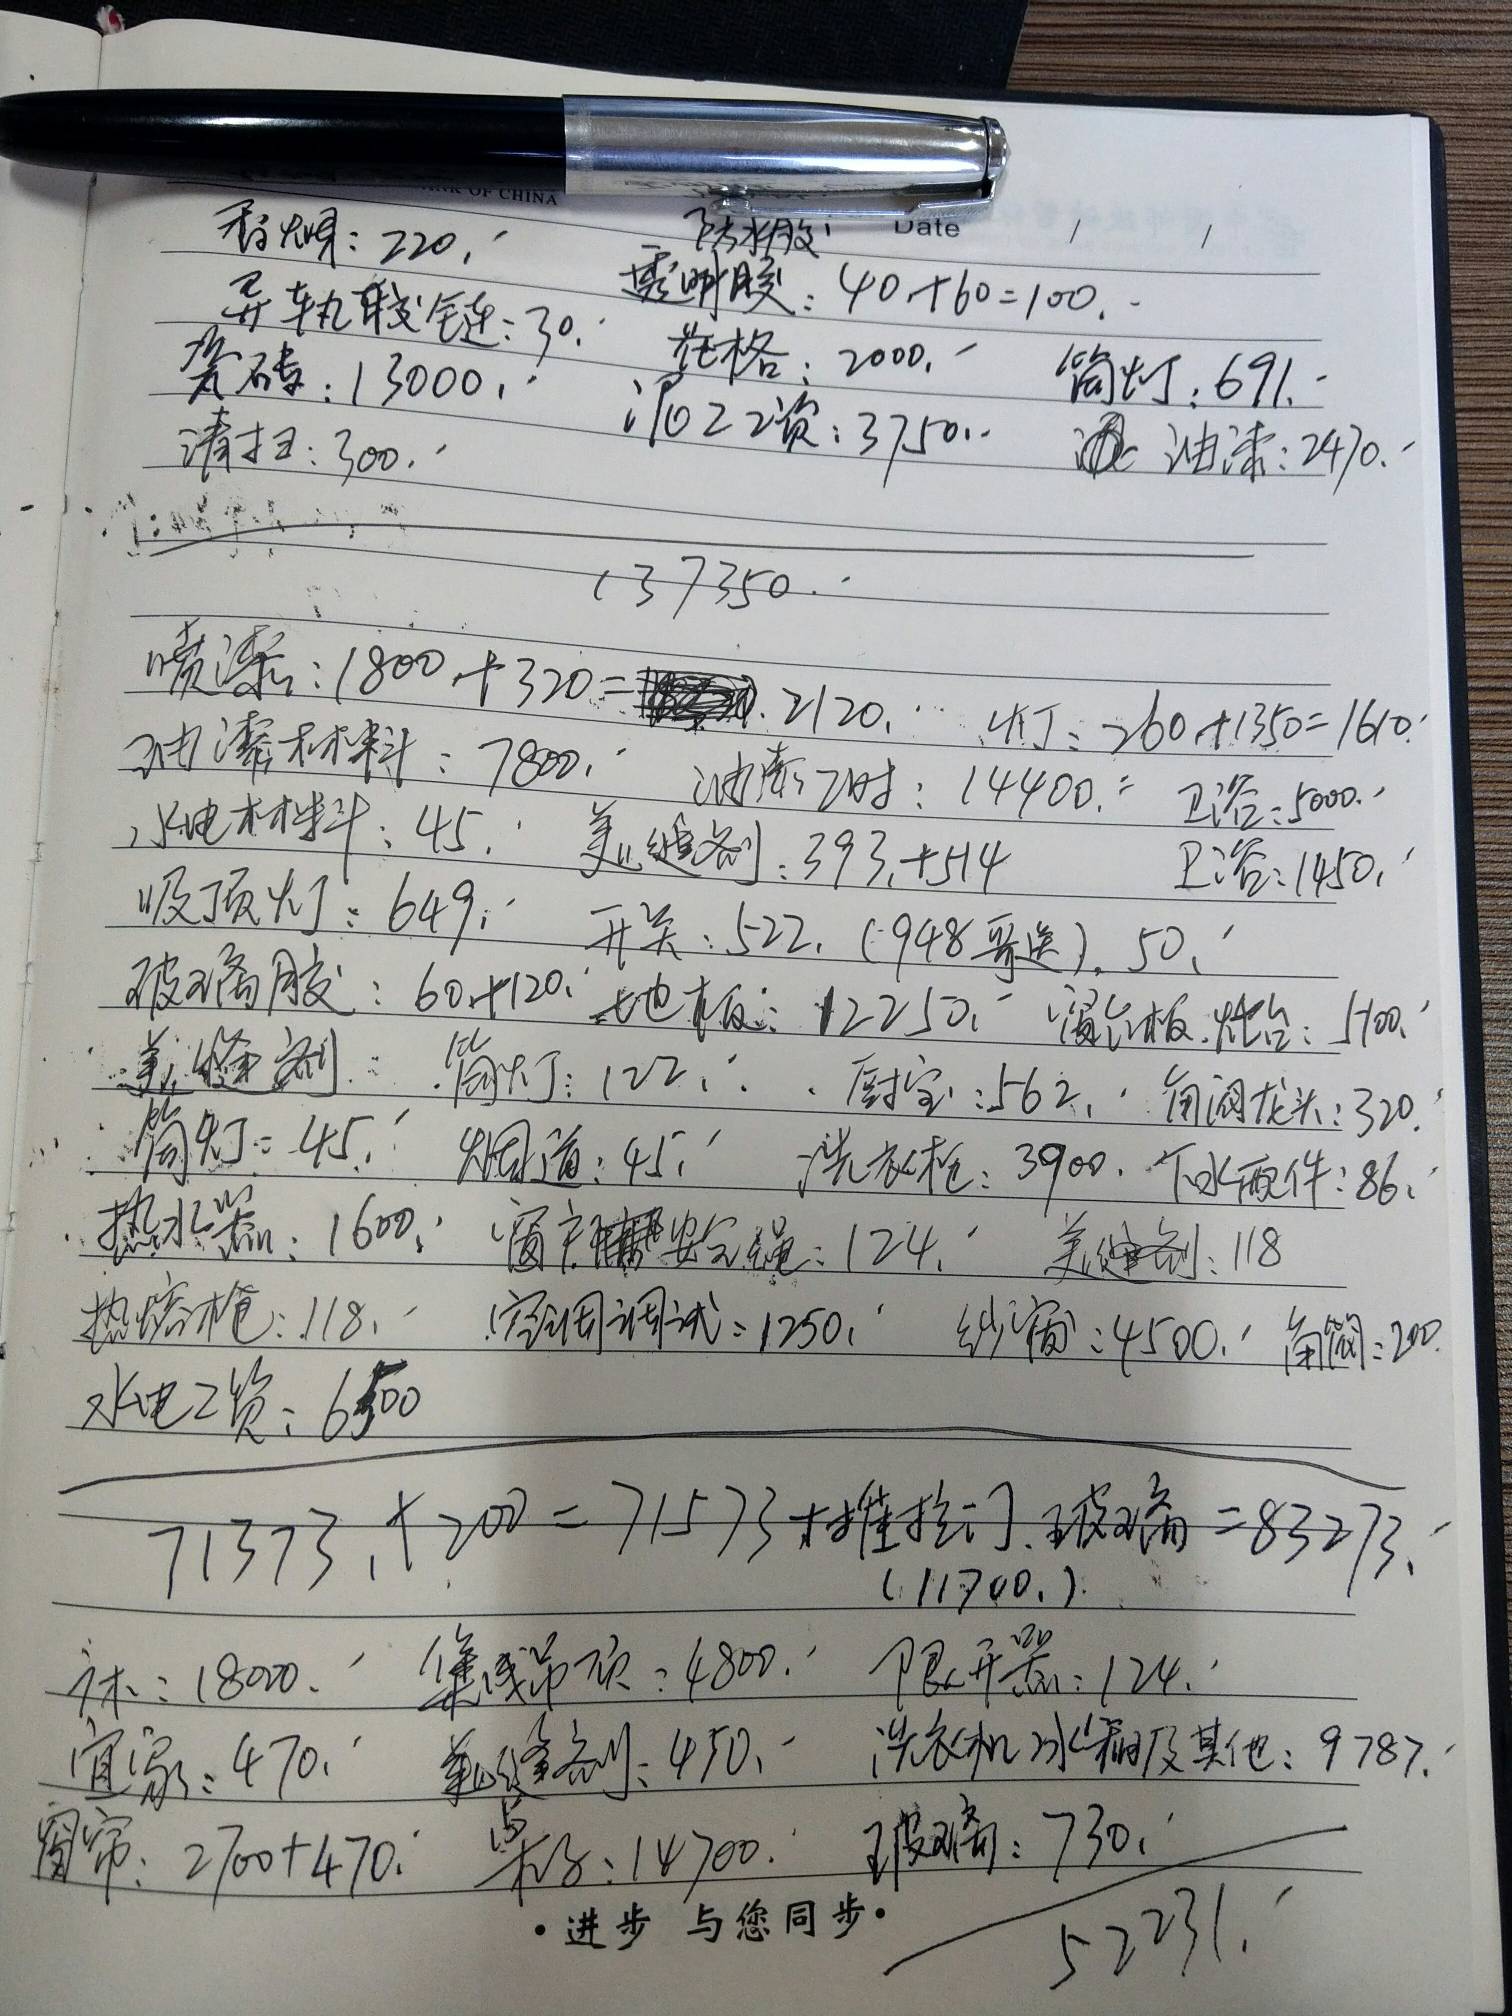 BANK OF CHINA
Date / /
220.
防水胶
透明胶: 40.+60=100.
异轨铰链: 30.
瓷砖: 13000. 花格: 2000. 筒灯: 691.
清扫: 300. 泥工工资: 3750. 油漆: 2470.
137350.
喷漆: 1800.+320= 2120. 灯: 260.+1350=1610.
油漆材料: 7800. 油漆工时: 14400. 卫浴: 5000.
水电材料: 45. 美缝剂: 393.+514 卫浴: 1450.
吸顶灯: 649. 开关: 522. (948哥送). 50.
玻璃胶: 60.+120. 地板: 12250. 窗台板.灶台: 5100.
美缝剂: 筒灯: 122. 厨宝: 562. 角阀龙头: 320.
筒灯: 45. 烟道: 45. 洗衣柜: 3900. 下水配件: 86.
热水器: 1600. 窗户安全绳: 124. 美缝剂: 118
热熔枪: 118. 空调调试: 1250. 纱窗: 4500. 角阀: 200.
水电工资: 6500
71373.+200=71573+推拉门.玻璃=83273.
(11700.)
床: 18000. 集成吊顶: 4800. 限开器: 124.
宜家: 470. 美缝剂: 450. 洗衣机冰箱及其他: 9787.
窗帘: 2700+470. 桌子: 14700. 玻璃: 730.
•进步 与您同步•
52231.